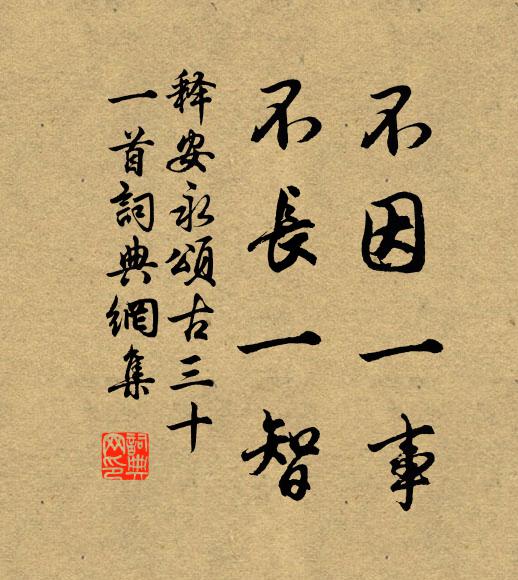 不因一事
不長一智
释安永頌古三十
一首詞典網集
詞典
网印